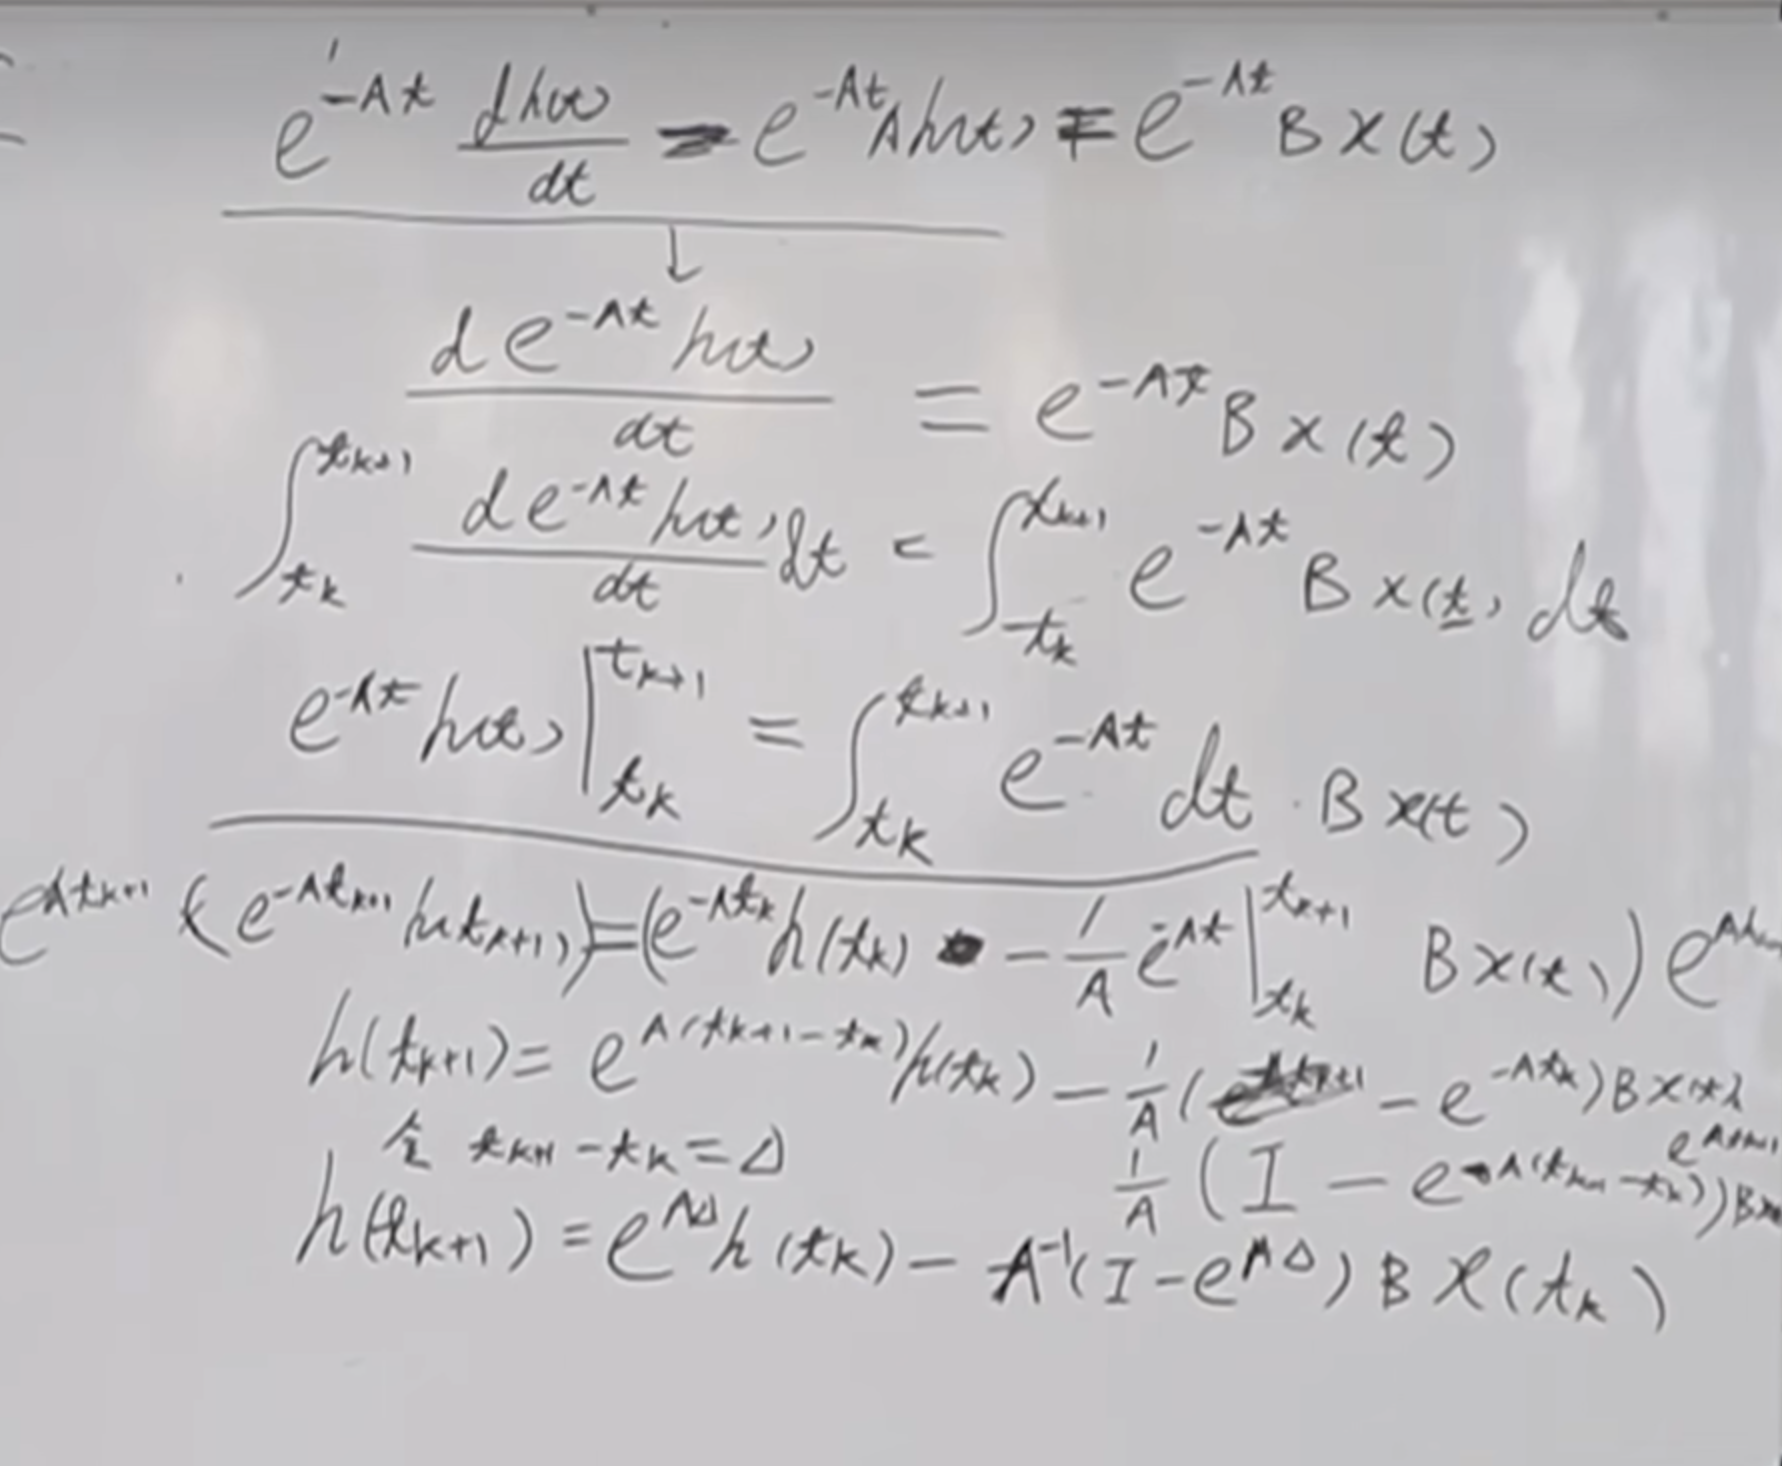 e^{-At} \frac{dh(t)}{dt} - e^{-At}Ah(t) = e^{-At}Bx(t)
↓
\frac{de^{-At}h(t)}{dt} = e^{-At}Bx(t)
\int_{t_k}^{t_{k+1}} \frac{de^{-At}h(t)}{dt}dt = \int_{t_k}^{t_{k+1}} e^{-At}Bx(t)dt
e^{-At}h(t)|_{t_k}^{t_{k+1}} = \int_{t_k}^{t_{k+1}} e^{-At}dt \cdot Bx(t)
e^{At_{k+1}}(e^{-At_{k+1}}h(t_{k+1})) = (e^{-At_k}h(t_k) - \frac{1}{A}e^{-At}|_{t_k}^{t_{k+1}} Bx(t))e^{A
h(t_{k+1}) = e^{A(t_{k+1}-t_k)}h(t_k) - \frac{1}{A}( - e^{-At_k})Bx(t)
e^{At_{k+1}}
令 t_{k+1} - t_k = Δ
\frac{1}{A}(I - e^{A(t_{k+1}-t_k)})Bx
h(t_{k+1}) = e^{AΔ}h(t_k) - A^{-1}(I - e^{AΔ})Bx(t_k)